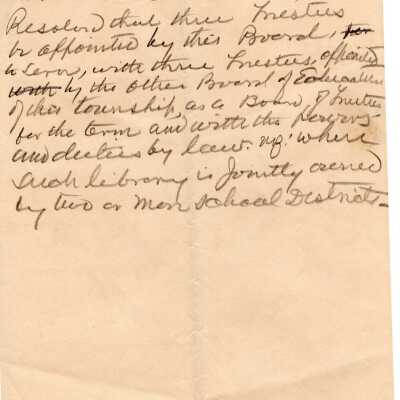 Resolved that three Trustees
be appointed by this Board, for
to serve, with three Trustees, appointed
with by the other Board of Education
of this township, as a Board of Trustees
for the term and with the powers
and duties by law. where
such library is Jointly owned
by two or more School Districts-